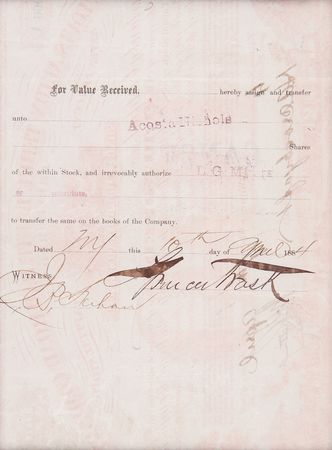 For Value Received. hereby assign and transfer
unto Acosta Nichols
Shares
of the within Stock, and irrevocably authorize L. G. M
or substitute,
to transfer the same on the books of the Company.
Dated NY this 10th day of April 1884
WITNESS
Spencer Trask